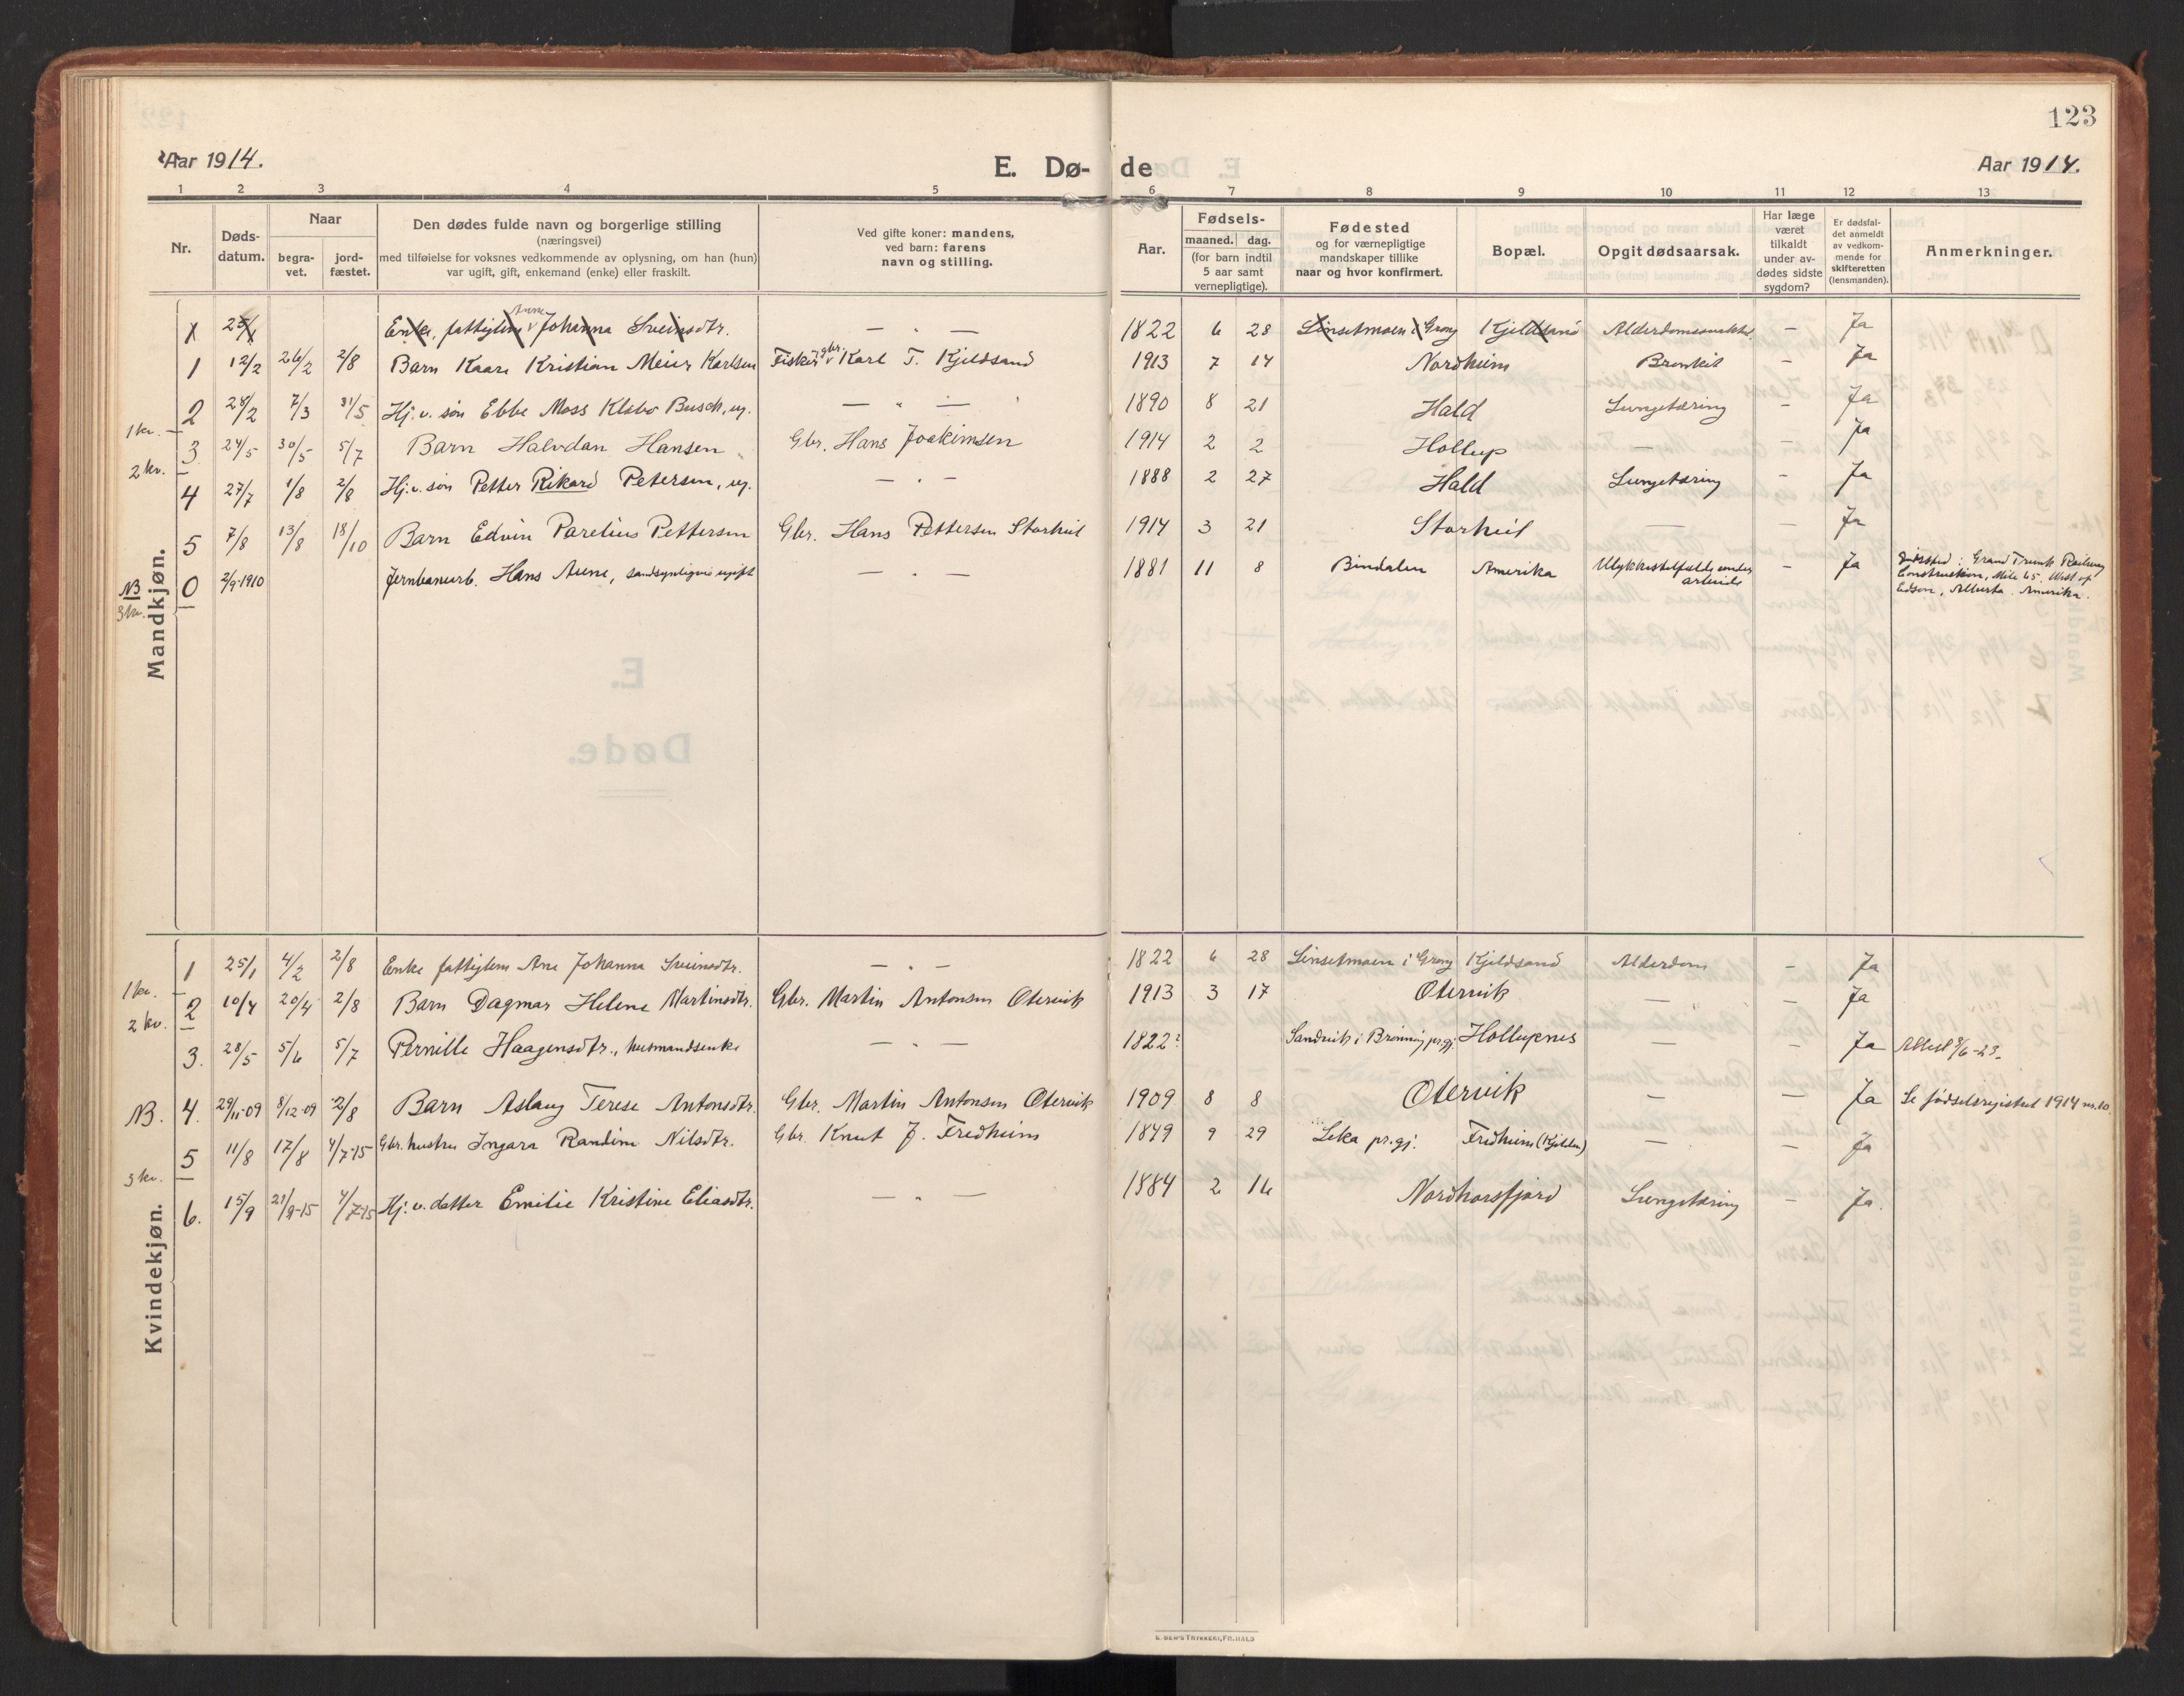 123
Aar 1914. E. Dø- de Aar 1914.
1 2 3 4 5 6 7 8 9 10 11 12 13
Nr. Døds-datum. Naar begra-vet. jord-fæstet. Den dødes fulde navn og borgerlige stilling (næringsvei) med tilføielse for voksnes vedkommende av oplysning, om han (hun) var ugift, gift, enkemand (enke) eller fraskilt. Ved gifte koner: mandens, ved barn: farens navn og stilling. Aar. Fødsels- maaned. dag. (for barn indtil 5 aar samt vernepligtige). Fødested og for værnepligtige mandskaper tillike naar og hvor konfirmert. Bopæl. Opgit dødsaarsak. Har læge været tilkaldt under av-dødes sidste sygdom? Er dødsfal-det anmeldt av vedkom-mende for skifteretten (lensmanden). Anmerkninger.
Mandkjøn.
25/1 Enke, fattiglem Anne Johanna Sveinsdtr. — " — 1822 6 28 Linsetmoen i Grong Kjeldsand — Ja
1 12/2 26/2 2/8 Barn Kaare Kristian Meier Karlsen Fisker, gbr. Karl T. Kjeldsand 1913 7 14 Nordheim Bronkit — Ja
2 28/2 7/3 31/5 Hj.v. søn Ebbe Moss Klabo Busch, ug. — " — 1890 8 21 Hald Lungetæring — Ja
1 kv.
3 24/5 30/5 5/7 Barn Halvdan Hansen Gbr. Hans Joakimsen 1914 2 2 Hollup — — Ja
2 kv.
4 27/7 1/8 2/8 Hj.v. søn Petter Rikard Petersen, ug. — " — 1888 2 27 Hald Lungetæring — Ja
5 7/8 13/8 18/10 Barn Edvin Parelius Pettersen Gbr. Hans Pettersen Storheil 1914 3 21 Storheil — — Ja
NB 0 2/9-1910 Jernbanearb. Hans Aune, sandsynligvis ugift — " — 1881 11 8 Bindalen Amerika Ulykkestilfælde under arbeide — Ja Dødssted: Grand Trunk Railway Construktion, Mile 65. West of Edson, Alberta. Amerika.
3 kv.
Kvindekjøn.
1 25/1 4/2 2/8 Enke fattiglem Ane Johanna Sveinsdtr. — " — 1822 6 28 Linsetmoen i Grong Kjeldsand Alderdom — Ja
1 kv.
2 10/4 20/4 2/8 Barn Dagmar Helene Martinsdtr. Gbr. Martin Antonsen Otervik 1913 3 17 Otervik — — Ja
2 kv.
3. 28/5 5/6 5/7 Pernille Haagensdtr., husmandsenke — " — 1822? Sandvik i Brønnøy pr.gj. Hollupnes — — Ja Attest 8/6-23.
NB. 4. 29/11-09 8/12-09 2/8 Barn Aslaug Terese Antonsdtr. Gbr. Martin Antonsen Otervik 1909 8 8 Otervik — — Ja Se fødselsregistret 1914 nr. 10.
5 11/8 17/8 4/7-15 Gbr. hustru Ingara Randine Nilsdtr. Gbr. Knut J. Fredheim 1849 9 29 Leka pr.gj. Fredheim (Kjelden) — — Ja
3 kv.
6. 15/9 21/9-15 4/7-15 Hj.v. datter Emilie Kristine Eliasdtr. — " — 1884 2 16 Nordhorsfjord Lungetæring — Ja.